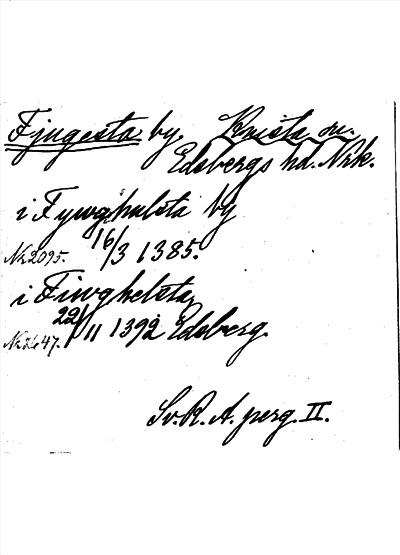 Fjugesta by, Knista sn.
Edsbergs hd. Nrk.
i Fywghulsta by
Nr 2095. 16/3 1385.
i Fiwghelsta
22/11 1392 Edsberg.
Sv. R. A. perg. II.